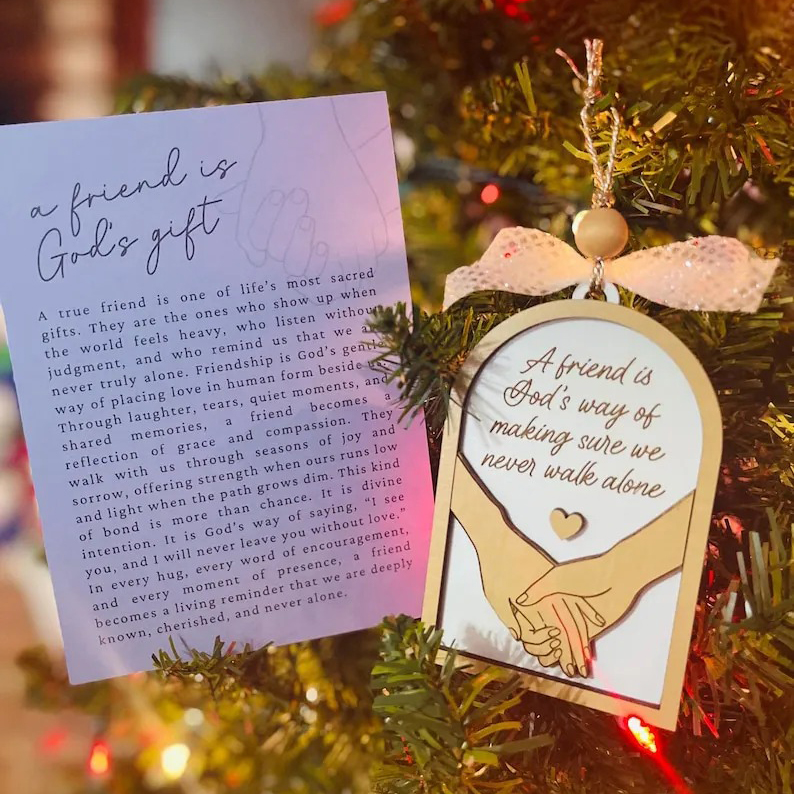 a friend is
God's gift
A true friend is one of life's most sacred
gifts. They are the ones who show up when
the world feels heavy, who listen without
judgment, and who remind us that we
never truly alone. Friendship is God's gentle
way of placing love in human form beside
Through laughter, tears, quiet moments, and
shared memories, a friend becomes a
reflection of grace and compassion. They
walk with us through seasons of joy and
sorrow, offering strength when ours runs low
and light when the path grows dim. This kind
of bond is more than chance. It is divine
intention. It is God's way of saying, "I see
you, and I will never leave you without love."
In every hug, every word of encouragement,
and every moment of presence, a friend
becomes a living reminder that we are deeply
known, cherished, and never alone.
A friend is
God's way of
making sure we
never walk alone